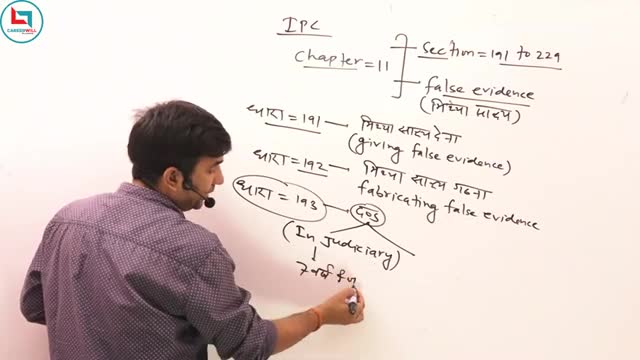 CAREERWILL
IPC
Chapter = 11
Section = 191 to 229
false evidence
(मिथ्या साक्ष्य)
धारा = 191 — मिथ्या साक्ष्य देना
(giving false evidence)
धारा = 192 — मिथ्या साक्ष्य गढना
fabricating false evidence
धारा = 193
(In judiciary)
7 वर्ष